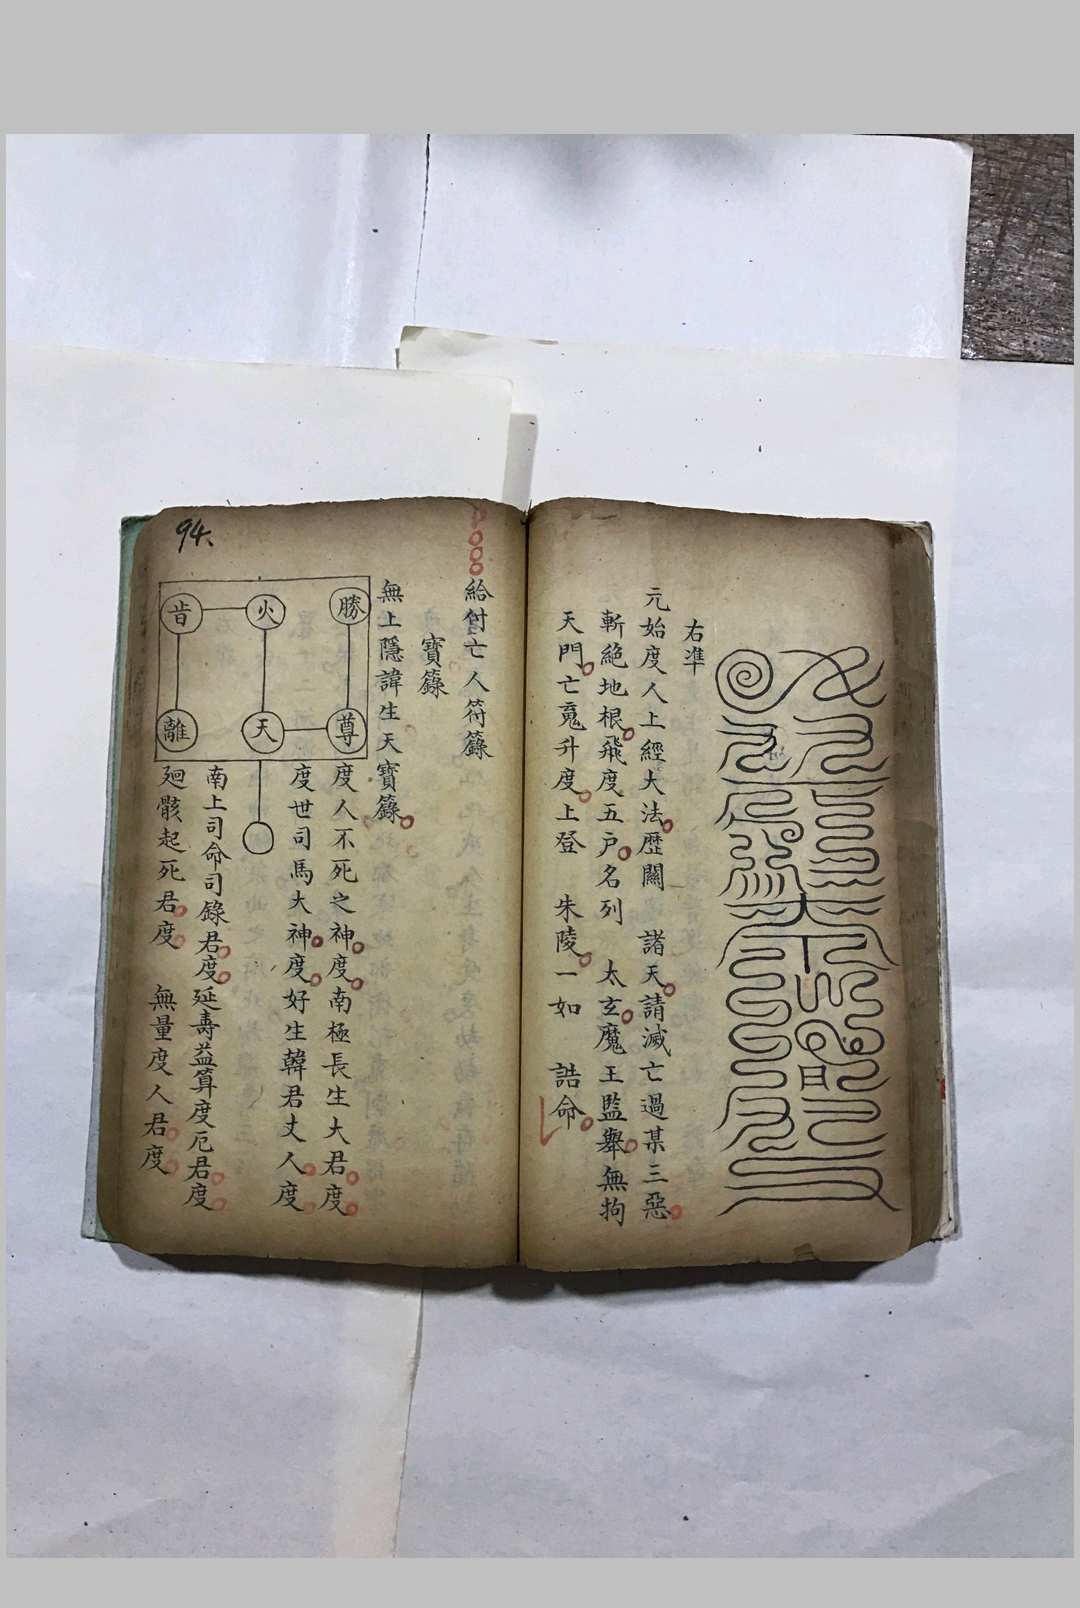 右準
元始度人上經大法歷關 諸天請滅亡過某三惡
斬絕地根飛度五户名列 太玄魔王監舉無拘
天門亡䰟升度上登 朱陵一如 誥命
給付亡人符籙
寶籙
無上隱諱生天寶籙
勝 火 肯
尊 天 離
度人不死之神度南極長生大君度
度世司馬大神度好生韓君丈人度
南上司命司錄君度延壽益算度厄君度
廻骸起死君度 無量度人君度
94.